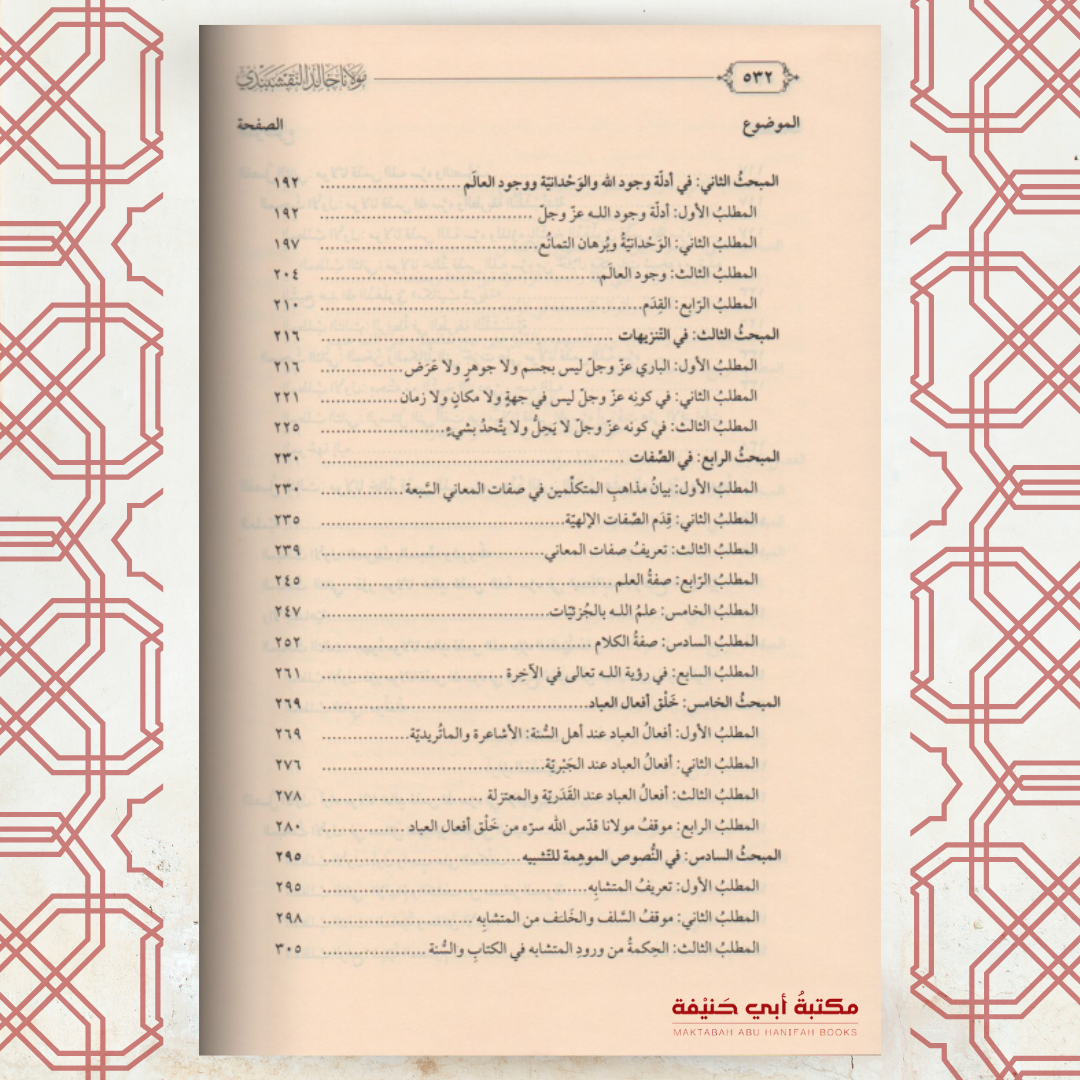 ٥٣٢ مولانا خالد النقشبندي
الموضوع الصفحة
المبحثُ الثاني: في أدلّة وجود الله والوَحْدانيّة ووجود العالَم ........ ١٩٢
المطلبُ الأول: أدلّة وجود اللـه عزّ وجلّ ........ ١٩٢
المطلبُ الثاني: الوَحْدانيّةُ وبُرهان التمانُع ........ ١٩٧
المطلبُ الثالث: وجود العالَم ........ ٢٠٤
المطلبُ الرّابع: القِدَم ........ ٢١٠
المبحثُ الثالث: في التّنزيهات ........ ٢١٦
المطلبُ الأول: الباري عزّ وجلّ ليس بجسم ولا جوهرٍ ولا عَرَض ........ ٢١٦
المطلبُ الثاني: في كونِه عزّ وجلّ ليس في جهةٍ ولا مكانٍ ولا زمان ........ ٢٢١
المطلبُ الثالث: في كونه عزّ وجلّ لا يَحِلُّ ولا يتَّحدُ بشيءٍ ........ ٢٢٥
المبحثُ الرابع: في الصِّفات ........ ٢٣٠
المطلبُ الأول: بيانُ مذاهبِ المتكلِّمين في صفات المعاني السَّبعة ........ ٢٣٠
المطلبُ الثاني: قِدَم الصِّفات الإلهيّة ........ ٢٣٥
المطلبُ الثالث: تعريفُ صفات المعاني ........ ٢٣٩
المطلبُ الرّابع: صفةُ العلم ........ ٢٤٥
المطلبُ الخامس: علمُ اللـه بالجُزئيّات ........ ٢٤٧
المطلبُ السادس: صفةُ الكلام ........ ٢٥٢
المطلبُ السابع: في رؤية اللـه تعالى في الآخِرة ........ ٢٦١
المبحثُ الخامس: خَلْق أفعال العباد ........ ٢٦٩
المطلبُ الأول: أفعالُ العباد عند أهل السُّنة: الأشاعرة والماتُريديّة ........ ٢٦٩
المطلبُ الثاني: أفعالُ العباد عند الجَبْريّة ........ ٢٧٦
المطلبُ الثالث: أفعالُ العباد عند القَدَريّة والمعتزلة ........ ٢٧٨
المطلبُ الرابع: موقفُ مولانا قدّس الله سرّه من خَلْق أفعال العباد ........ ٢٨٠
المبحثُ السادس: في النُّصوص الموهِمة للتّشبيه ........ ٢٩٥
المطلبُ الأول: تعريفُ المتشابِه ........ ٢٩٥
المطلبُ الثاني: موقفُ السَّلف والخَلَف من المتشابِه ........ ٢٩٨
المطلبُ الثالث: الحِكمةُ من ورودِ المتشابه في الكتابِ والسُّنة ........ ٣٠٥
مكتبةُ أبي حَنيْفة
MAKTABAH ABU HANIFAH BOOKS